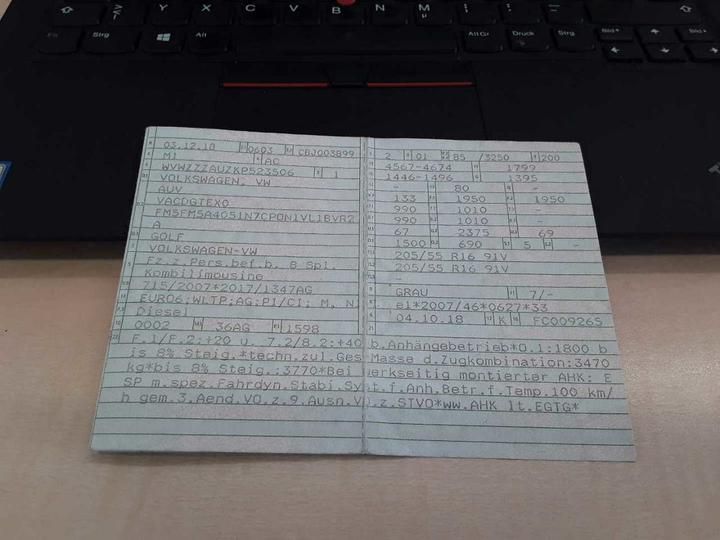 03.12.18 0603 CBJ003899
M1 AC
WVWZZZAUZKP523506 1
VOLKSWAGEN, VW
AUV
VACDGTEX0
FM5FM5A4051N7CPON1VL1BVR2
A
GOLF
VOLKSWAGEN-VW
Fz.z.Pers.bef.b. 8 Spl.
Kombilimousine
715/2007*2017/1347AG
EURO6;WLTP;AG;P1/CI; M, N
Diesel
0002 36AG 1598
2 01 85 /3250 200
4567-4674 1799
1446-1496 1395
- 80 -
133 1950 1950
990 1010 -
990 1010 -
67 2375 69
1500 690 5 -
205/55 R16 91V
205/55 R16 91V
-
GRAU 7/-
e1*2007/46*0627*33
04.10.18 K FC009265
F.1/F.2:+20 u. 7.2/8.2:+40 b.Anhängebetrieb*O.1:1800 b
is 8% Steig.*techn.zul.Ges Masse d.Zugkombination:3470
kg*bis 8% Steig.:3770*Bei werkseitig montierter AHK: E
SP m.spez.Fahrdyn.Stabi.Syst.f.Anh.Betr.f.Temp.100 km/
h gem.3.Aend.VO.z.9.Ausn.VO.z.STVO*ww.AHK lt.EGTG*
Fn
Strg
Alt
Alt Gr
Druck
Strg
Bild
Bild
Y
X
C
V
B
N
M
µ